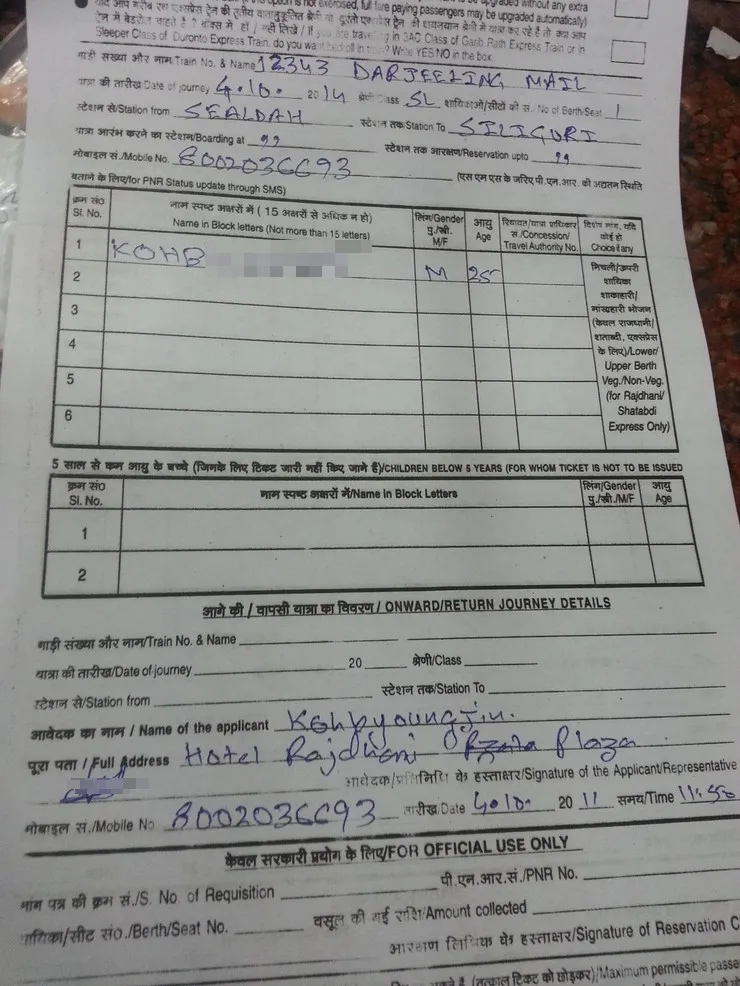 is not exercised, full fare paying passengers may be upgraded automatically)
Sleeper Class of Duronto Express Train, do you want
Write YES/NO in the box
गाड़ी संख्या और नाम/Train No. & Name 12343 DARJEELING MAIL
यात्रा की तारीख/Date of journey 4.10. 2014 श्रेणी/Class SL शायिकाओं/सीटों की सं. No of Berth/Seat 1
स्टेशन से/Station from SEALDAH स्टेशन तक/Station To SILIGURI
यात्रा आरंभ करने का स्टेशन/Boarding at " स्टेशन तक आरक्षण/Reservation upto "
मोबाइल सं./Mobile No. 8002036693 (एस एम एस के जरिए पी.एन.आर. की अद्यतन स्थिति
बताने के लिए/for PNR Status update through SMS)
क्रम सं० Sl. No. नाम स्पष्ट अक्षरों में ( 15 अक्षरों से अधिक न हो) Name in Block letters (Not more than 15 letters) लिंग/Gender पु./स्त्री. M/F आयु Age रियायत/यात्रा प्राधिकार सं./Concession/ Travel Authority No. Choice if any
1 KOHB
2 M 25
3
4
5
6
निचली/ऊपरी
शायिका
शाकाहारी/
मांसाहारी भोजन
(केवल राजधानी/
शताब्दी, एक्सप्रेस
के लिए)/Lower/
Upper Berth
Veg./Non-Veg.
(for Rajdhani/
Shatabdi
Express Only)
5 साल से कम आयु के बच्चे (जिनके लिए टिकट जारी नहीं किए जाने हैं)/CHILDREN BELOW 5 YEARS (FOR WHOM TICKET IS NOT TO BE ISSUED
क्रम सं० Sl. No. नाम स्पष्ट अक्षरों में/Name in Block Letters लिंग/Gender पु./स्त्री./M/F आयु Age
1
2
आगे की / वापसी यात्रा का विवरण / ONWARD/RETURN JOURNEY DETAILS
गाड़ी संख्या और नाम/Train No. & Name
यात्रा की तारीख/Date of journey 20 श्रेणी/Class
स्टेशन से/Station from स्टेशन तक/Station To
आवेदक का नाम / Name of the applicant
पूरा पता / Full Address Hotel Rajdhani Plaza
आवेदक/प्रतिनिधि के हस्ताक्षर/Signature of the Applicant/Representative
मोबाइल सं./Mobile No 8002036693 तारीख/Date 4.10. 2011 समय/Time 11.50
केवल सरकारी प्रयोग के लिए/FOR OFFICIAL USE ONLY
मांग पत्र की क्रम सं./S. No. of Requisition पी.एन.आर.सं./PNR No.
शायिका/सीट सं०./Berth/Seat No. वसूल की गई राशि/Amount collected
आरक्षण लिपिक के हस्ताक्षर/Signature of Reservation C
(तत्काल टिकट को छोड़कर)/Maximum permissible passe